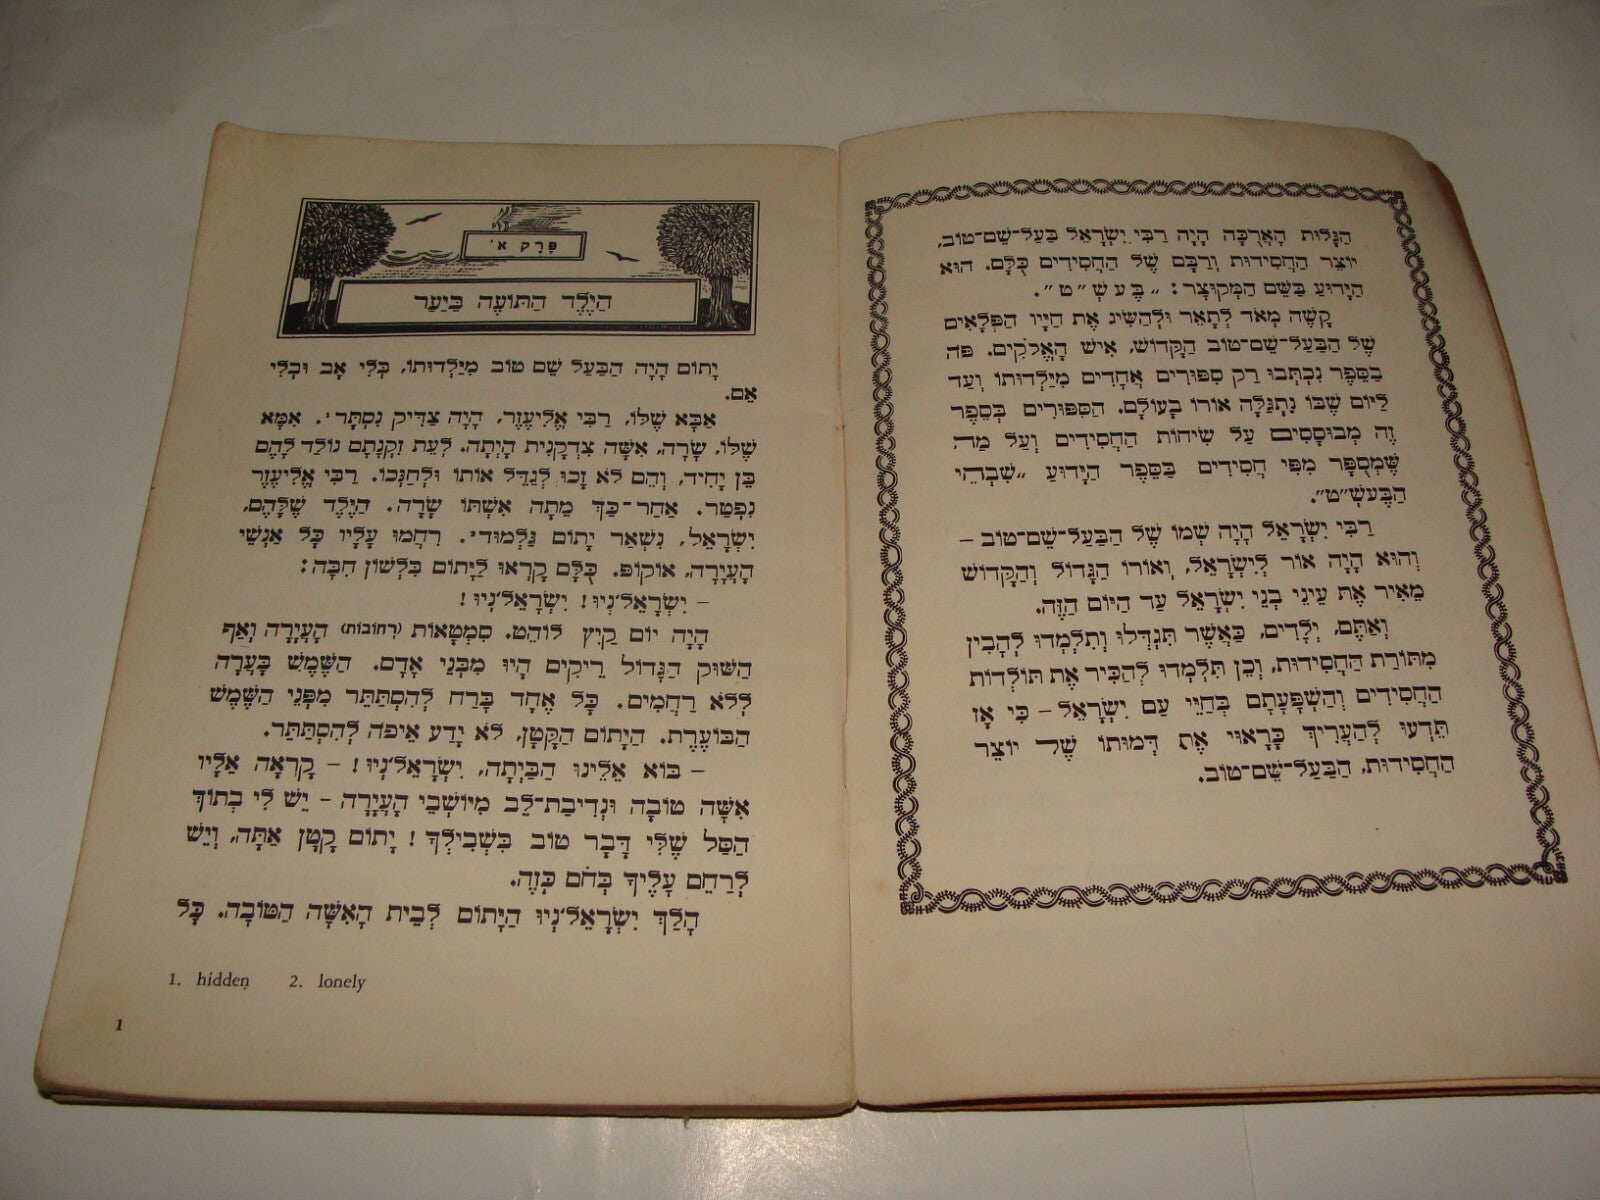 הַגָּלוּת הָאֲרֻכָּה הָיָה רַבִּי יִשְׂרָאֵל בַּעַל־שֵׁם־טוֹב,
יוֹצֵר הַחֲסִידוּת וְרַבָּם שֶׁל הַחֲסִידִים כֻּלָּם. הוּא
הַיָּדוּעַ בַּשֵּׁם הַמְּקוּצָר: „בֶּ עְ שְׁ ״ ט״.
קָשֶׁה מְאֹד לְתָאֵר וּלְהַשִּׂיג אֶת חַיָּיו הַפְּלָאִים
שֶׁל הַבַּעַל־שֵׁם־טוֹב הַקָּדוֹשׁ, אִישׁ הָאֱלֹקִים. פֹּה
בַּסֵּפֶר נִכְתְּבוּ רַק סִפּוּרִים אֲחָדִים מִיַּלְדוּתוֹ וְעַד
לַיּוֹם שֶׁבּוֹ נִתְגַּלָּה אוֹרוֹ בָּעוֹלָם. הַסִּפּוּרִים בְּסֵפֶר
זֶה מְבוּסָּסִים עַל שִׂיחוֹת הַחֲסִידִים וְעַל מַה
שֶּׁמְּסֻפָּר מִפִּי חֲסִידִים בַּסֵּפֶר הַיָּדוּעַ „שִׁבְחֵי
הַבֶּעשְׁ״ט״.
רַבִּי יִשְׂרָאֵל הָיָה שְׁמוֹ שֶׁל הַבַּעַל־שֵׁם־טוֹב –
וְהוּא הָיָה אוֹר לְיִשְׂרָאֵל, וְאוֹרוֹ הַגָּדוֹל וְהַקָּדוֹשׁ
מֵאִיר אֶת עֵינֵי בְּנֵי יִשְׂרָאֵל עַד הַיּוֹם הַזֶּה.
וְאַתֶּם, יְלָדִים, כַּאֲשֶׁר תִּגְדְּלוּ וְתִלְמְדוּ לְהָבִין
מִתּוֹרַת הַחֲסִידוּת, וְכֵן תִּלְמְדוּ לְהַכִּיר אֶת תּוֹלְדוֹת
הַחֲסִידִים וְהַשְׁפָּעָתָם בְּחַיֵּי עַם יִשְׂרָאֵל – כִּי אָז
תֵּדְעוּ לְהַעֲרִיךְ כָּרָאוּי אֶת דְּמוּתוֹ שֶׁל יוֹצֵר
הַחֲסִידוּת, הַבַּעַל־שֵׁם־טוֹב.
פֶּרֶק א׳
הַיֶּלֶד הַתּוֹעֶה בַּיַּעַר
יָתוֹם הָיָה הַבַּעַל שֵׁם טוֹב מִיַּלְדוּתוֹ, בְּלִי אָב וּבְלִי
אֵם.
אַבָּא שֶׁלּוֹ, רַבִּי אֱלִיעֶזֶר, הָיָה צַדִּיק נִסְתָּר¹. אִמָּא
שֶׁלּוֹ, שָׂרָה, אִשָּׁה צִדְקָנִית הָיְתָה. לְעֵת זִקְנָתָם נוֹלַד לָהֶם
בֵּן יָחִיד, וְהֵם לֹא זָכוּ לְגַדֵּל אוֹתוֹ וּלְחַנְּכוֹ. רַבִּי אֱלִיעֶזֶר
נִפְטַר. אַחַר־כַּךְ מֵתָה אִשְׁתּוֹ שָׂרָה. הַיֶּלֶד שֶׁלָּהֶם,
יִשְׂרָאֵל, נִשְׁאַר יָתוֹם גַּלְמוּד². רִחֲמוּ עָלָיו כָּל אַנְשֵׁי
הָעֲיָרָה, אוֹקוֹפּ. כֻּלָּם קָרְאוּ לַיָּתוֹם בִּלְשׁוֹן חִבָּה:
– יִשְׂרָאֵל׳נְיוּ! יִשְׂרָאֵל׳נְיוּ!
הָיָה יוֹם קַיִץ לוֹהֵט. סִמְטָאוֹת (רְחוֹבוֹת) הָעֲיָרָה וְאַף
הַשּׁוּק הַגָּדוֹל רֵיקִים הָיוּ מִבְּנֵי אָדָם. הַשֶּׁמֶשׁ בָּעֲרָה
לְלֹא רַחֲמִים. כָּל אֶחָד בָּרַח לְהִסְתַּתֵּר מִפְּנֵי הַשֶּׁמֶשׁ
הַבּוֹעֶרֶת. הַיָּתוֹם הַקָּטָן, לֹא יָדַע אֵיפֹה לְהִסְתַּתֵּר.
– בּוֹא אֵלֵינוּ הַבַּיְתָה, יִשְׂרָאֵל׳נְיוּ! – קָרְאָה אֵלָיו
אִשָּׁה טוֹבָה וּנְדִיבַת־לֵב מִיּוֹשְׁבֵי הָעֲיָרָה – יֵשׁ לִי בְּתוֹךְ
הַסַּל שֶׁלִּי דָּבָר טוֹב בִּשְׁבִילְךָ! יָתוֹם קָטָן אַתָּה, וְיֵשׁ
לְרַחֵם עָלֶיךָ בְּחֹם כָּזֶה.
הָלַךְ יִשְׂרָאֵל׳נְיוּ הַיָּתוֹם לְבֵית הָאִשָּׁה הַטּוֹבָה. כָּל
1. hidden 2. lonely
1